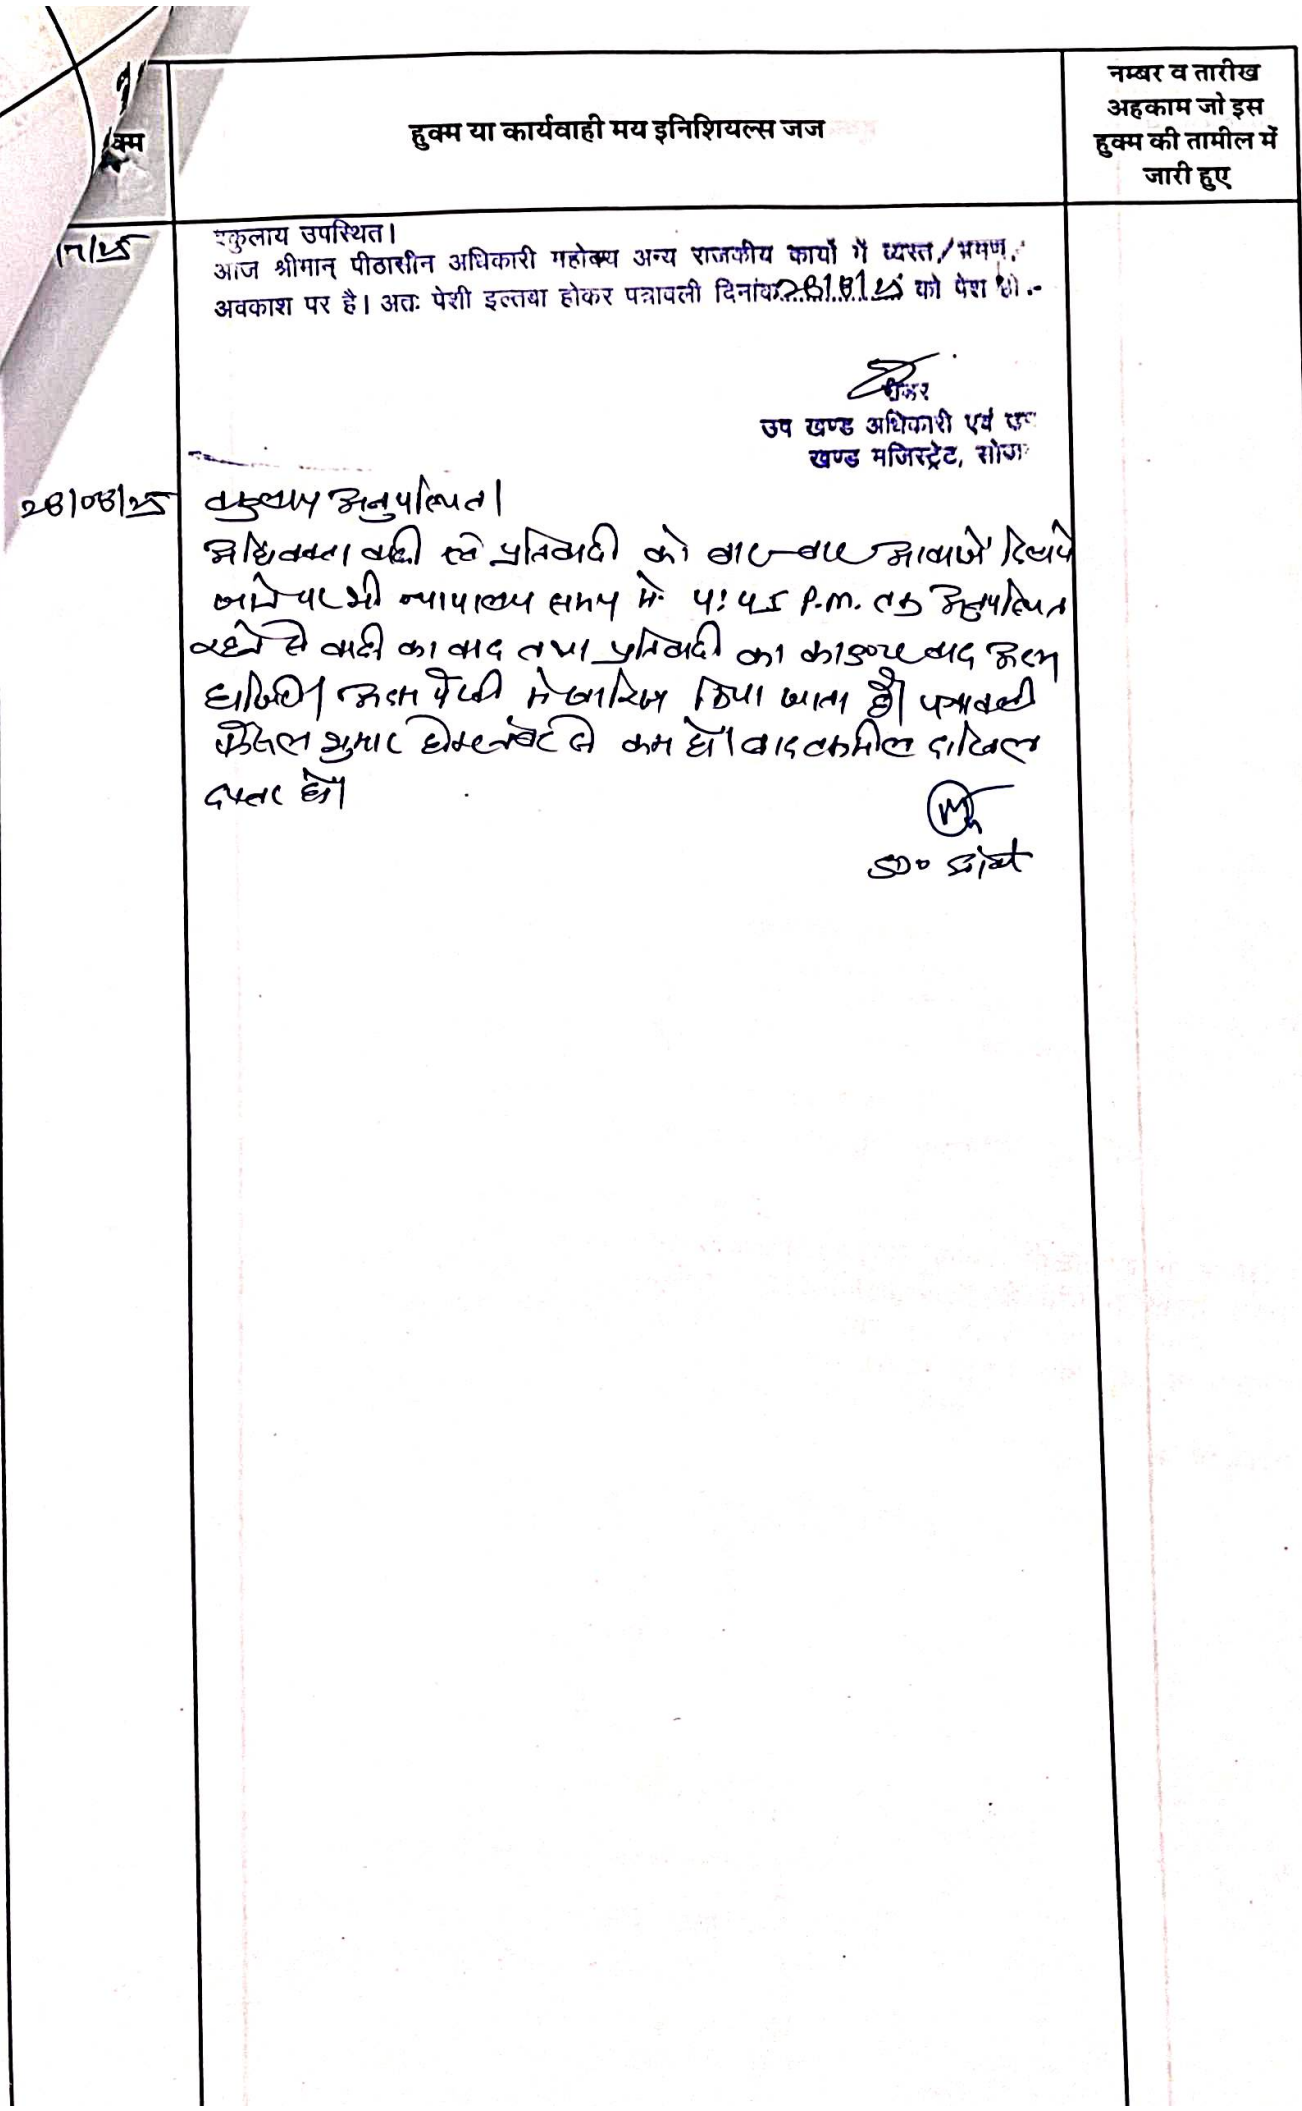 क्म
हुक्म या कार्यवाही मय इनिशियल्स जज
नम्बर व तारीख
अहकाम जो इस
हुक्म की तामील में
जारी हुए
/7/25
वकुलाय उपस्थित।
आज श्रीमान् पीठासीन अधिकारी महोदय अन्य राजकीय कार्यो में व्यस्त/भ्रमण/
अवकाश पर है। अतः पेशी इल्तबा होकर पत्रावली दिनांक 28/8/25 को पेश हो।
रीडर
उप खण्ड अधिकारी एवं उप
खण्ड मजिस्ट्रेट, सोज
28/08/25
वकुलाय अनुपस्थित।
अधिवक्ता वादी एवं प्रतिवादी को बार-बार आवाजें दिलाये
जाने पर भी न्यायालय समय में 4:45 P.M. तक अनुपस्थित
रहने से वादी का वाद तथा प्रतिवादी का काउण्टर वाद अदम
हाजिरी अदम पैरवी में खारिज किया जाता है। पत्रावली
फैसल शुमार होकर नंबर से कम हो। बाद तकमील दाखिल
दफ्तर हो।
SDO सोजत